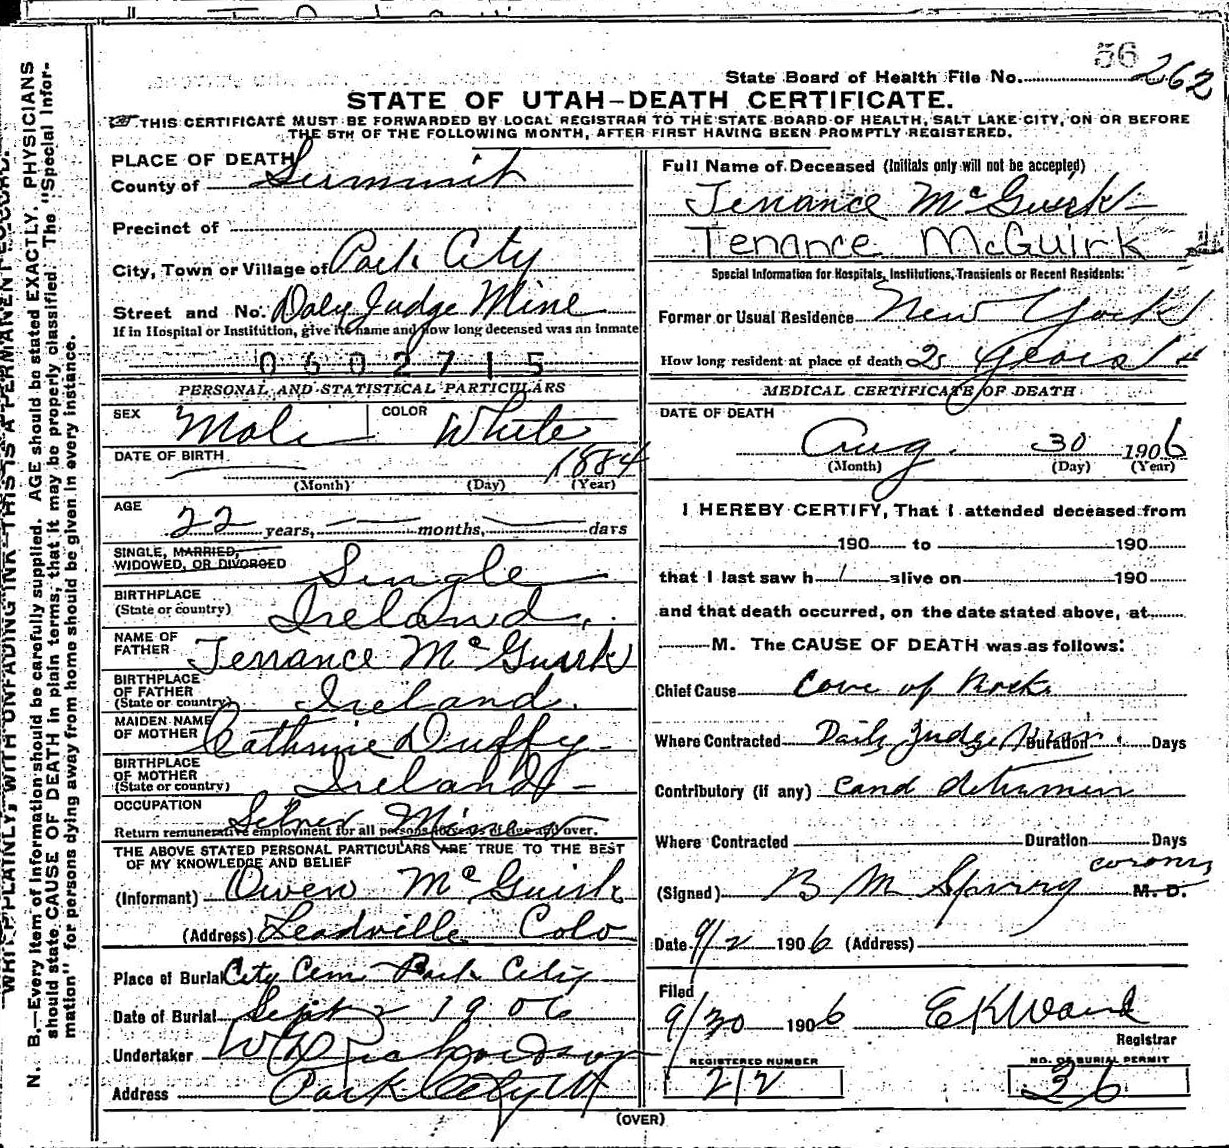 56 262
State Board of Health File No.
STATE OF UTAH—DEATH CERTIFICATE.
THIS CERTIFICATE MUST BE FORWARDED BY LOCAL REGISTRAR TO THE STATE BOARD OF HEALTH, SALT LAKE CITY, ON OR BEFORE
THE 5TH OF THE FOLLOWING MONTH, AFTER FIRST HAVING BEEN PROMPTLY REGISTERED.
WRITE PLAINLY, WITH UNFADING INK—THIS IS A PERMANENT RECORD.
N. B.—Every item of information should be carefully supplied. AGE should be stated EXACTLY. PHYSICIANS
should state CAUSE OF DEATH in plain terms, that it may be properly classified. The "Special Infor-
mation" for persons dying away from home should be given in every instance.
PLACE OF DEATH
County of Summit
Precinct of
City, Town or Village of Park City
Street and No. Daly Judge Mine
If in Hospital or Institution, give its name and how long deceased was an inmate
0602715
PERSONAL AND STATISTICAL PARTICULARS
SEX Male COLOR White
DATE OF BIRTH 1884
(Month) (Day) (Year)
AGE
22 years, months, days
SINGLE, MARRIED,
WIDOWED, OR DIVORCED Single
BIRTHPLACE
(State or country) Ireland
NAME OF
FATHER Terrance McGuirk
BIRTHPLACE
OF FATHER
(State or country) Ireland.
MAIDEN NAME
OF MOTHER Cathrine Duffy
BIRTHPLACE
OF MOTHER
(State or country) Ireland
OCCUPATION Silver Miner
Return remunerative employment for all persons
THE ABOVE STATED PERSONAL PARTICULARS ARE TRUE TO THE BEST
OF MY KNOWLEDGE AND BELIEF
(Informant) Owen McGuirk
(Address) Leadville Colo
Place of Burial City Cem Park City
Date of Burial Sept 2 1906
Undertaker Richardson
Address Park City Ut
Full Name of Deceased (Initials only will not be accepted)
Tenance McGuirk
Tenance McGuirk
Special Information for Hospitals, Institutions, Transients or Recent Residents:
Former or Usual Residence New York
How long resident at place of death 2 years
MEDICAL CERTIFICATE OF DEATH
DATE OF DEATH
Aug. 30 1906
(Month) (Day) (Year)
I HEREBY CERTIFY, That I attended deceased from
190 to 190
that I last saw h alive on 190
and that death occurred, on the date stated above, at
M. The CAUSE OF DEATH was as follows:
Chief Cause Cave of Rock
Where Contracted Daily Judge Duration Days
Contributory (if any)
Where Contracted Duration Days
(Signed) B M Sprivy M. D.
Date 9/2 1906 (Address)
Filed
9/30 1906 E K Ward
Registrar
REGISTERED NUMBER NO. OF BURIAL PERMIT
212 26
(OVER)